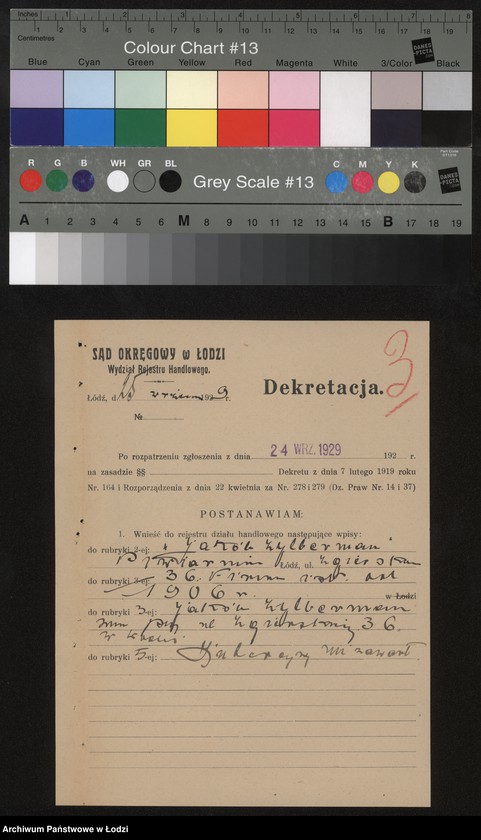 Inches 1 2 3 4 5 6 7 8
Centimetres 1 2 3 4 5 6 7 8 9 10 11 12 13 14 15 16 17 18 19
Colour Chart #13
DAMES PICTA
Blue Cyan Green Yellow Red Magenta White 3/Color Black
R G B WH GR BL
Grey Scale #13
C M Y K
DAMES PICTA
A 1 2 3 4 5 6 M 8 9 10 11 12 13 14 15 B 17 18 19
3
SĄD OKRĘGOWY w ŁODZI
Wydział Rejestru Handlowego.
Łódź, d. 25 1929 r.
Dekretacja.
№
Po rozpatrzeniu zgłoszenia z dnia 24 WRZ. 1929 192 r.
na zasadzie §§ Dekretu z dnia 7 lutego 1919 roku
Nr. 164 i Rozporządzenia z dnia 22 kwietnia za Nr. 278 i 279 (Dz. Praw Nr. 14 i 37)
POSTANAWIAM:
1. Wnieść do rejestru działu handlowego następujące wpisy:
do rubryki 2-ej: „Jakób Zylberman"
Piwiarnia Łódź, ul. Zgierska
do rubryki 3-ej: 36. Firma istn. od
1906 r. w Łodzi
do rubryki 3-ej: Jakób Zylberman
zam. przy ul. Zgierskiej 36.
w Łodzi
do rubryki 5-ej: Intercyzy nie zawarł.
Archiwum Państwowe w Łodzi